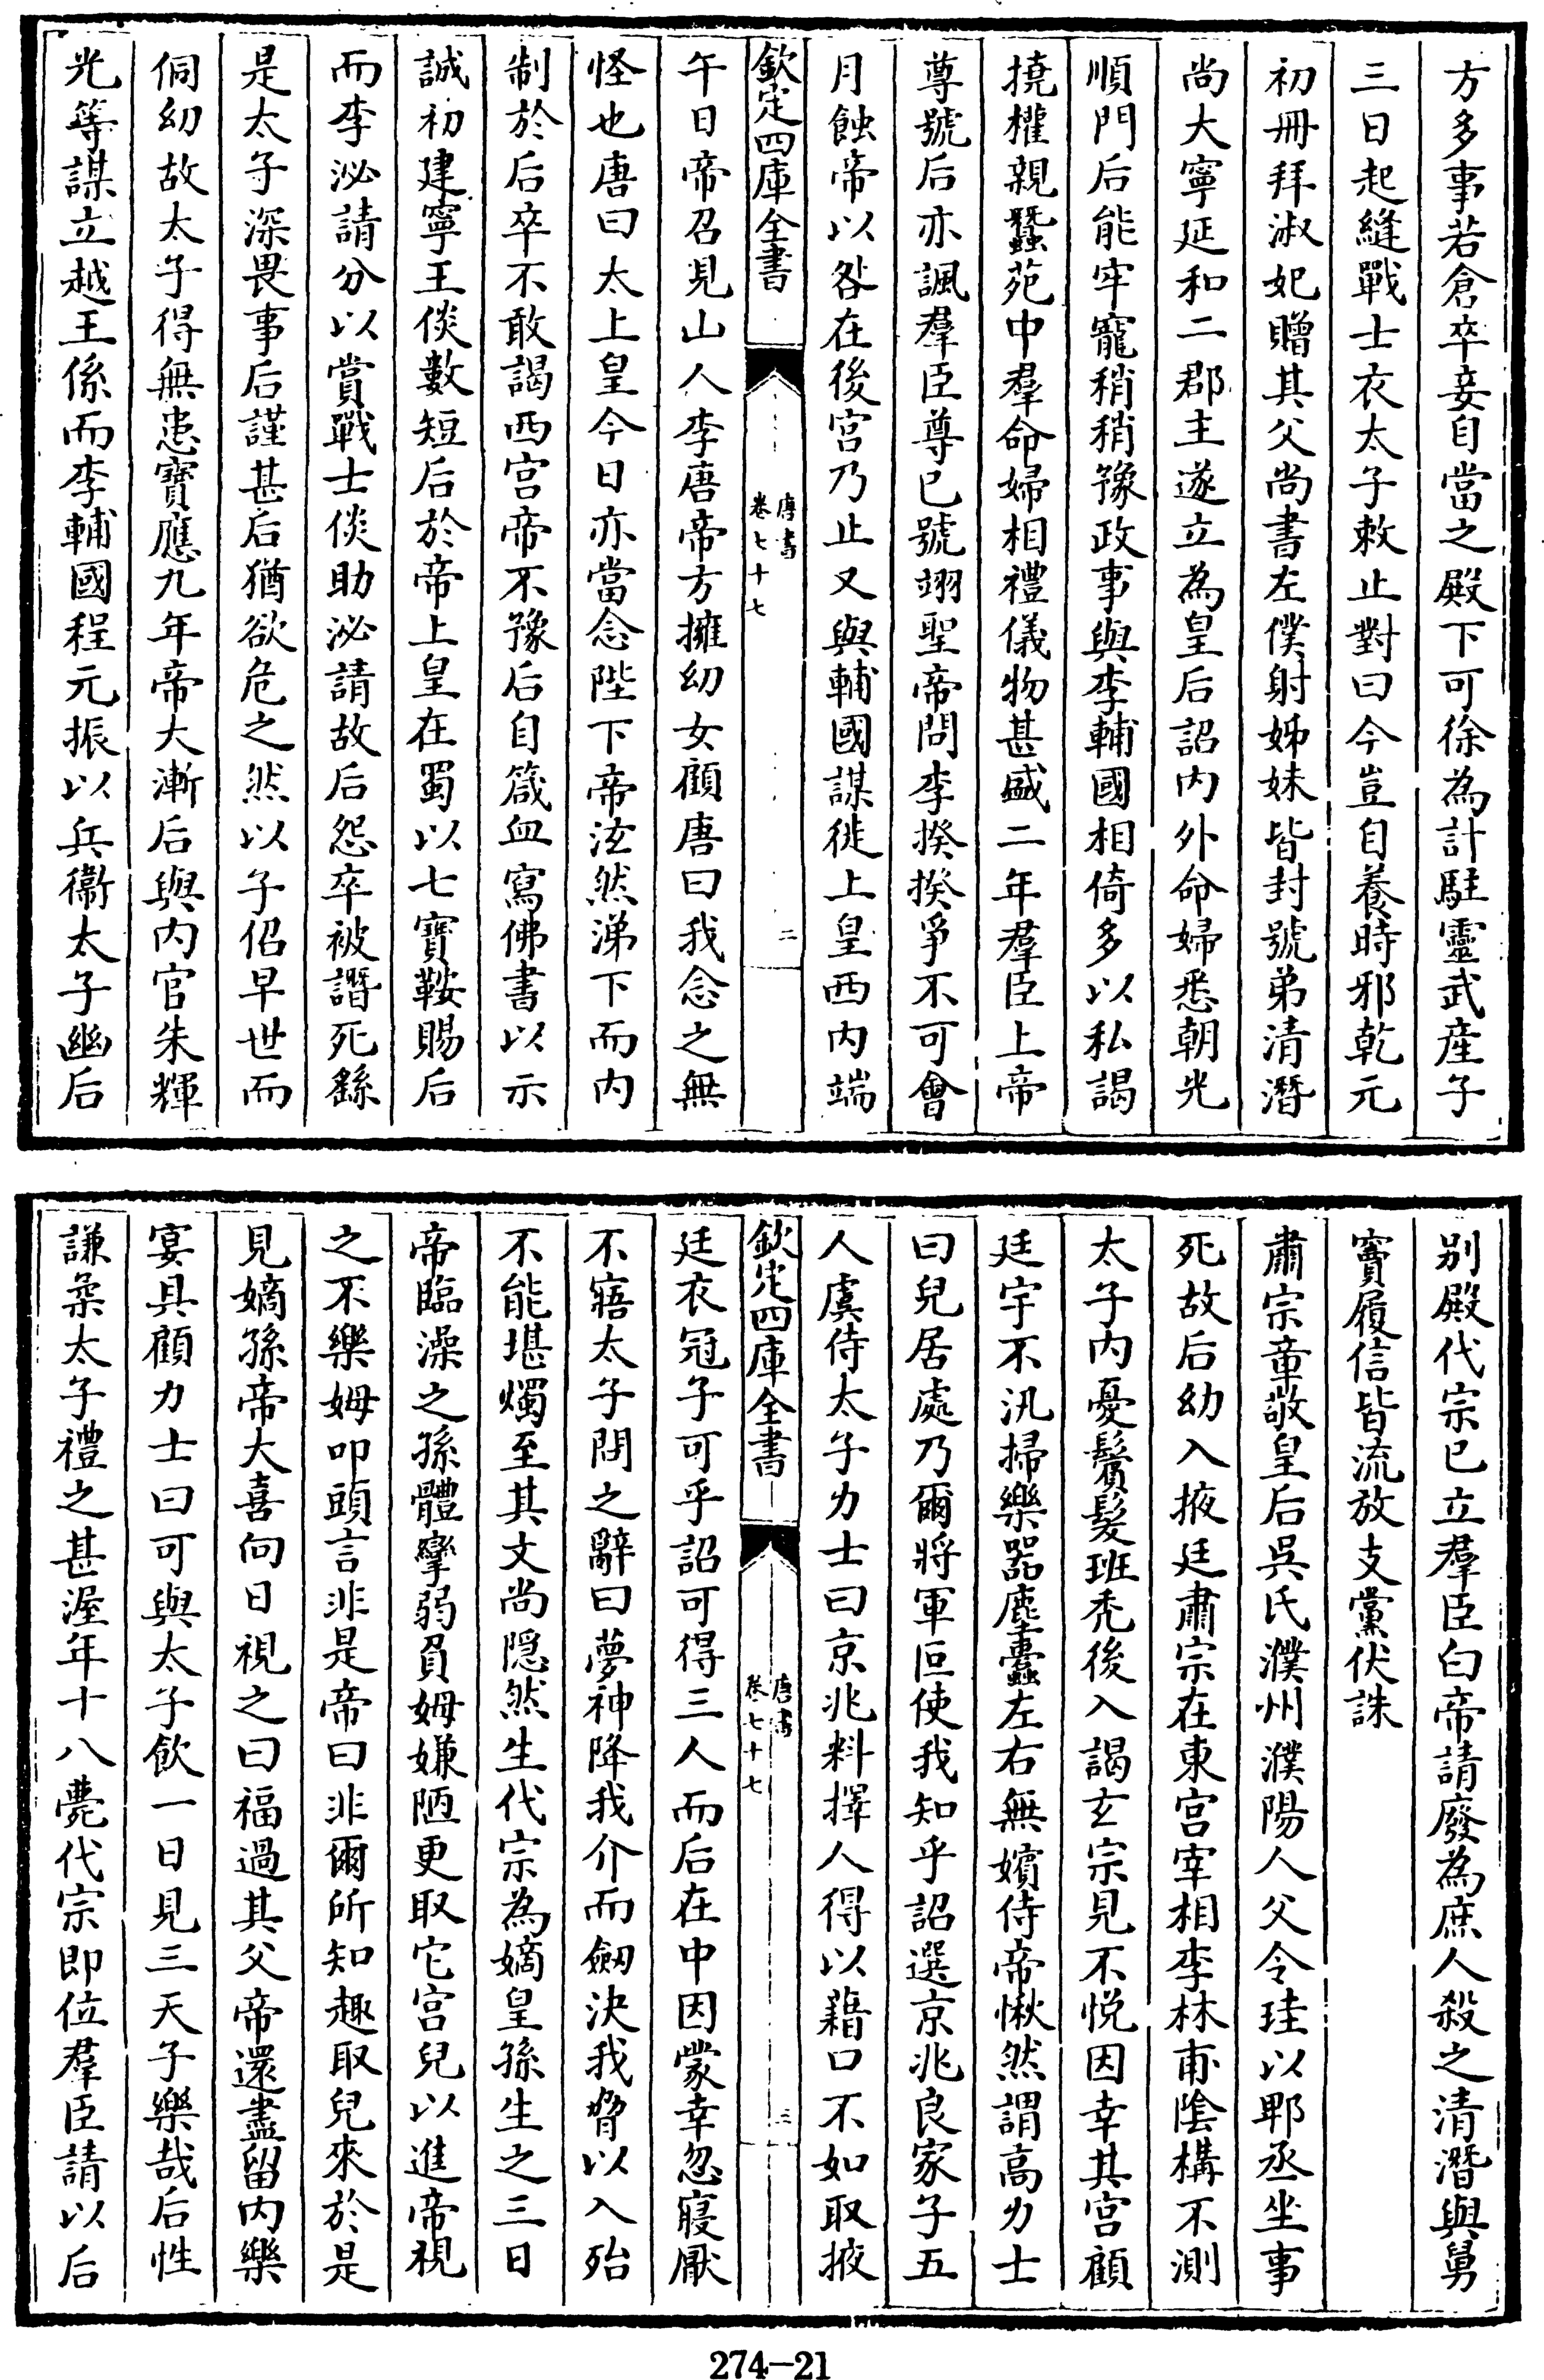 方多事若倉卒妾自當之殿下可徐為計駐靈武産子
三日起縫戰士衣太子敕止對曰今豈自養時邪乾元
初冊拜淑妃贈其父尚書左僕射姊妹皆封號弟清潛
尚大寧延和二郡主遂立為皇后詔内外命婦悉朝光
順門后能牢寵稍稍豫政事與李輔國相倚多以私謁
撓權親蠶苑中羣命婦相禮儀物甚盛二年羣臣上帝
尊號后亦諷羣臣尊已號翊聖帝問李揆揆爭不可會
月蝕帝以咎在後宫乃止又與輔國謀徙上皇西内端
欽定四庫全書
唐書
卷七十七
二
午日帝召見山人李唐帝方擁幼女顧唐曰我念之無
怪也唐曰太上皇今日亦當念陛下帝泫然涕下而内
制於后卒不敢謁西宫帝不豫后自箴血寫佛書以示
誠初建寧王倓數短后於帝上皇在蜀以七寶鞍賜后
而李泌請分以賞戰士倓助泌請故后怨卒被譖死繇
是太子深畏事后謹甚后猶欲危之然以子佋早世而
侗幼故太子得無患寶應九年帝大漸后與内官朱輝
光等謀立越王係而李輔國程元振以兵衞太子幽后
别殿代宗已立羣臣白帝請廢為庶人殺之清潛與舅
竇履信皆流放支黨伏誅
肅宗章敬皇后吳氏濮州濮陽人父令珪以郫丞坐事
死故后幼入掖廷肅宗在東宫宰相李林甫陰構不測
太子内憂鬢髮班秃後入謁玄宗見不悦因幸其宫顧
廷宇不汎掃樂器塵蠹左右無嬪侍帝愀然謂高力士
曰兒居處乃爾將軍叵使我知乎詔選京兆良家子五
人虞侍太子力士曰京兆料擇人得以藉口不如取掖
欽定四庫全書
唐書
卷七十七
三
廷衣冠子可乎詔可得三人而后在中因蒙幸忽寢厭
不寤太子問之辭曰夢神降我介而劒決我脅以入殆
不能堪燭至其文尚隠然生代宗為嫡皇孫生之三日
帝臨澡之孫體孿弱負姆嫌陋更取它宫兒以進帝視
之不樂姆叩頭言非是帝曰非爾所知趣取兒來於是
見嫡孫帝大喜向日視之曰福過其父帝還盡留内樂
宴具顧力士曰可與太子飲一日見三天子樂哉后性
謙柔太子禮之甚渥年十八薨代宗即位羣臣請以后
274-21